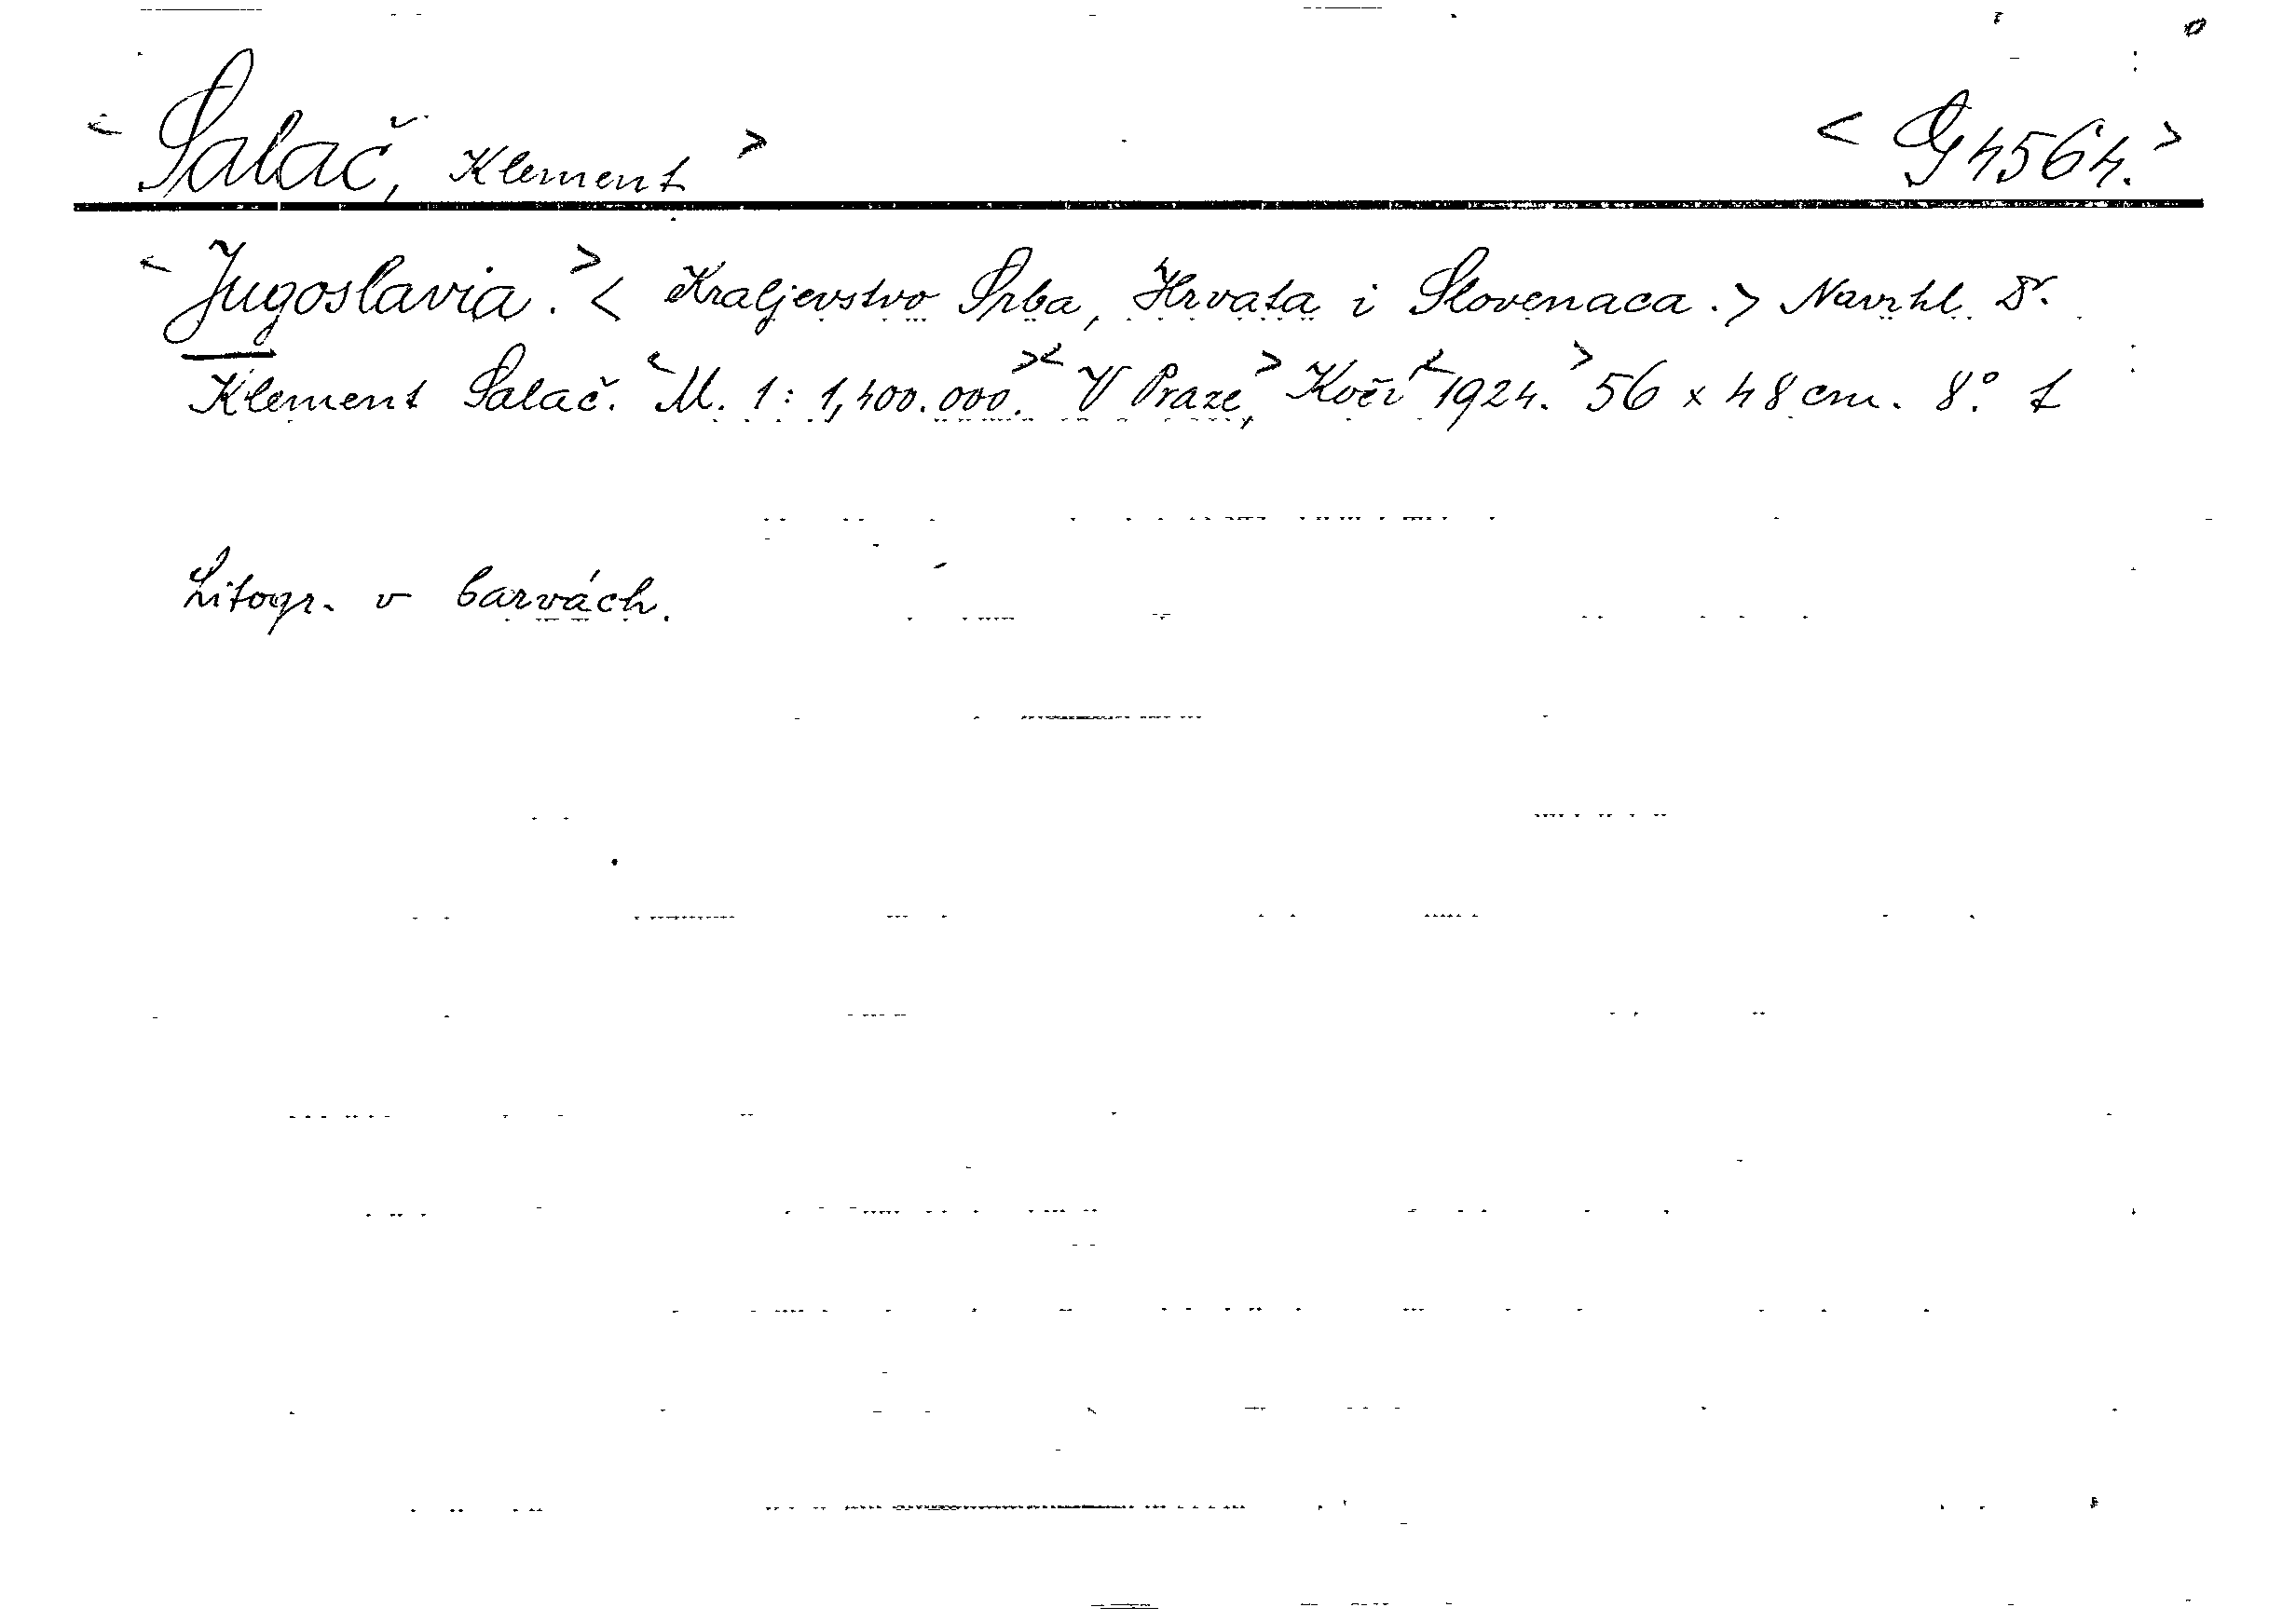 < Salač, Klement > < G 4564. >
< Jugoslavia. > < Kraljevstvo Srba, Hrvata i Slovenaca. > Navrhl Dr.
Klement Salač. < M. 1 : 1,400.000. > < V Praze, > Kočí < 1924. > 56 x 48 cm. 8°. t
Litogr. v barvách.